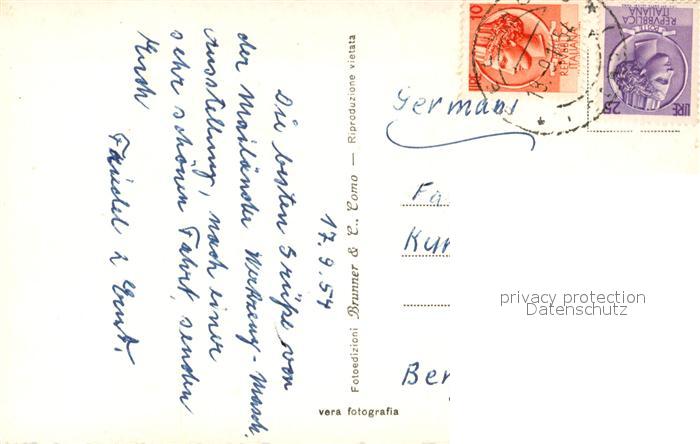 17.9.54
Die besten Grüße von
der Mailänder Werkzeug-Masch.
Ausstellung, nach einer
sehr schönen Fahrt, senden
Euch
Ernst.
Fotoedizioni Brunner & C., Como — Riproduzione vietata
vera fotografia
LIRE 10
REPVBBLICA
ITALIANA
POSTE
REPVBBLICA
ITALIANA
LIRE 25
Germani
Fa
Kur
Ber
privacy protection
Datenschutz